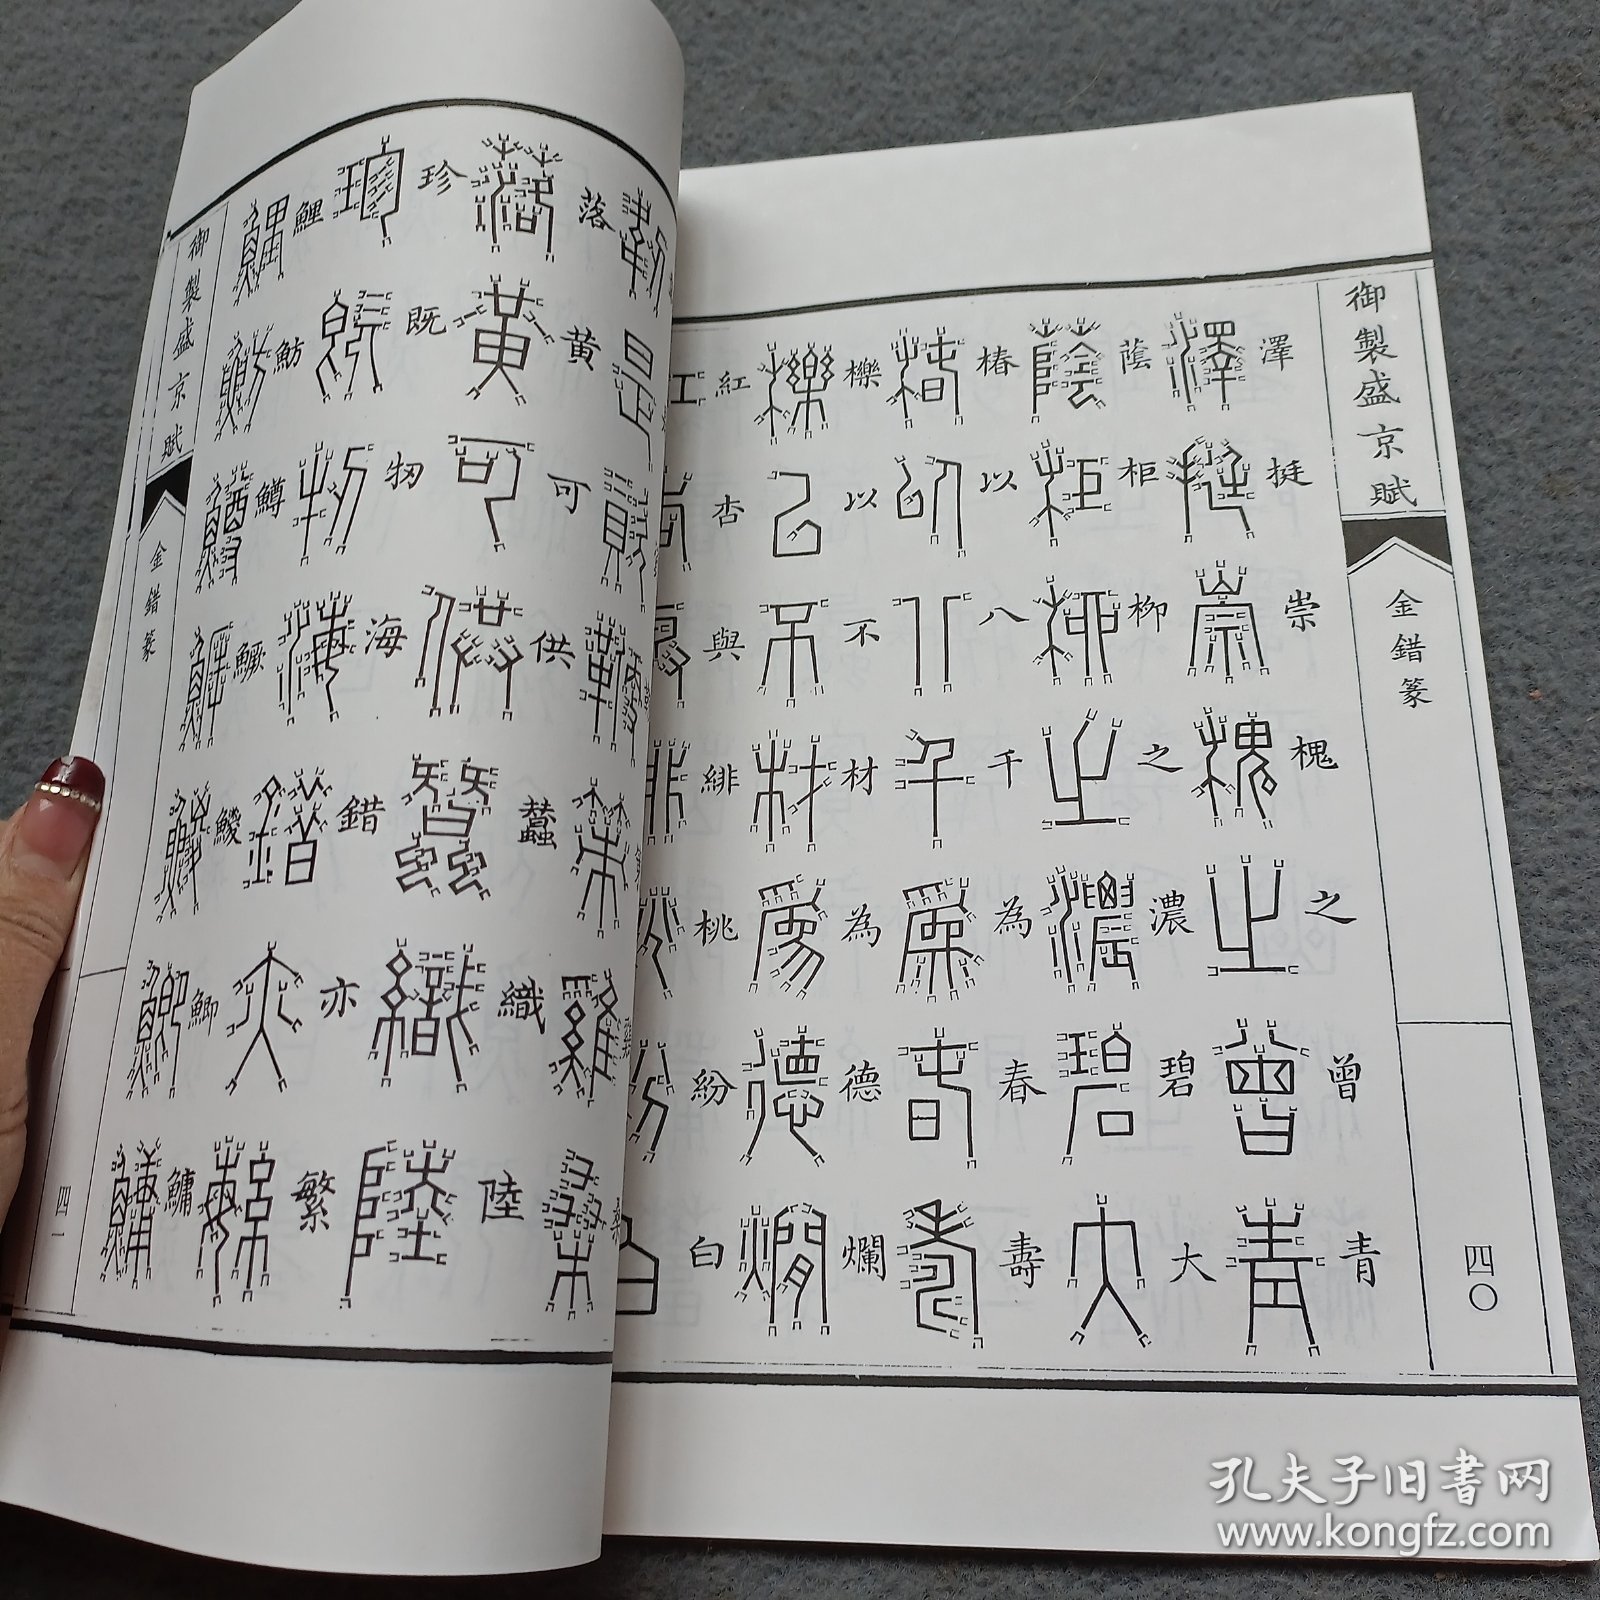 御製盛京賦
金錯篆
四〇
澤挺崇槐之曾青
蔭柜柳之濃碧大
椿以八千為春壽
櫟以不材為德爛
紅杏與緋桃紛白
落黃可供蠶織陸
珍既牣海錯亦繁
鯉魴鱒鱖鯼鯽鱅
御製盛京賦
金錯篆
四一
孔夫子旧书网
www.kongfz.com